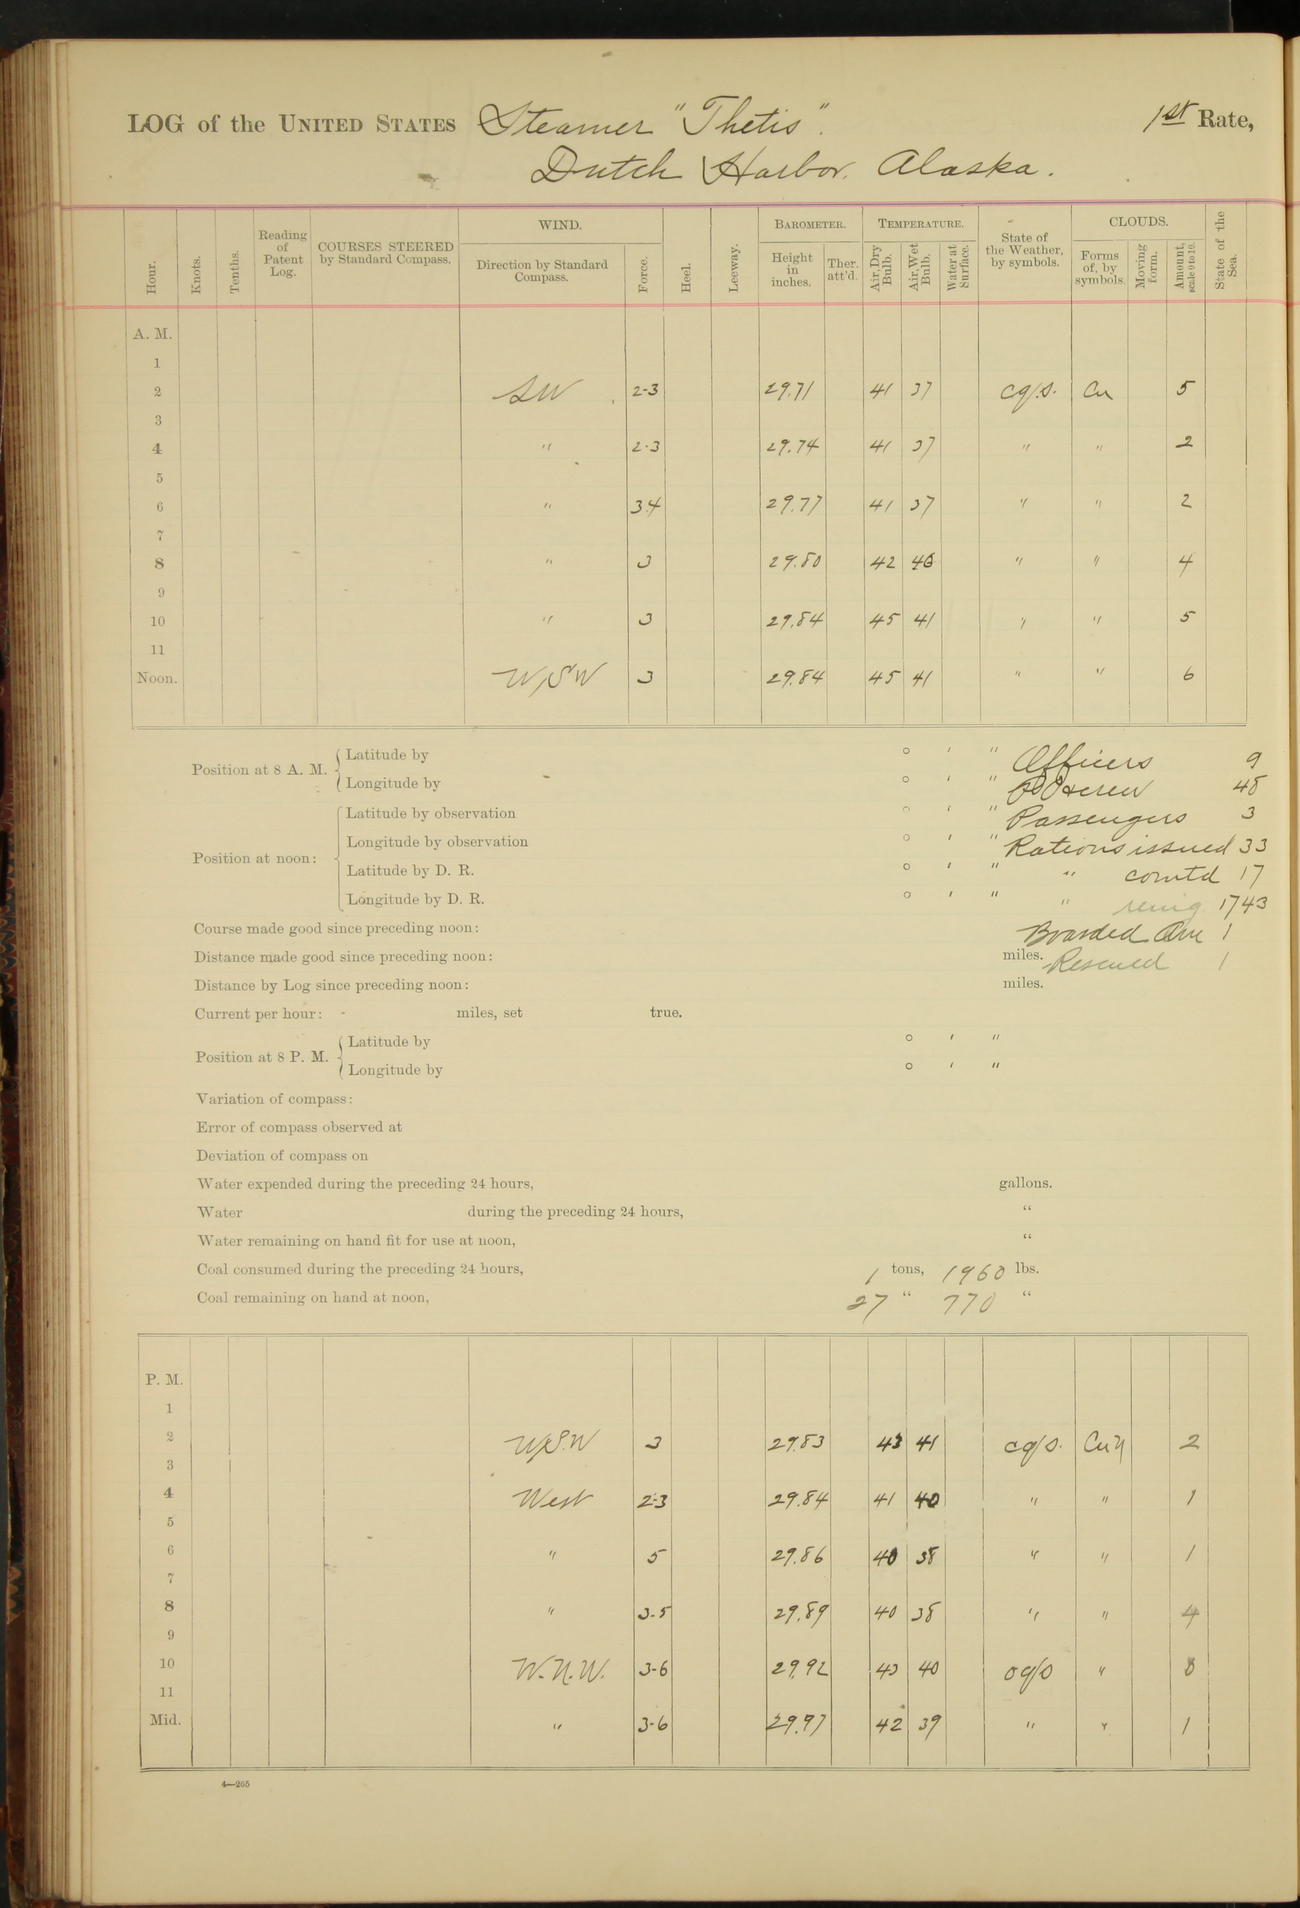 LOG of the UNITED STATES Steamer "Thetis". 1st Rate,
Dutch Harbor. Alaska.
Hour. Knots. Tenths. Reading of Patent Log. COURSES STEERED by Standard Compass. WIND. Direction by Standard Compass. Force. Heel. Leeway. BAROMETER. Height in inches. Ther. att'd. TEMPERATURE. Air, Dry Bulb. Air, Wet Bulb. Water at Surface. State of the Weather, by symbols. CLOUDS. Forms of, by symbols. Moving form. Amount, scale 0 to 10. State of the Sea.
A. M.
1
2 SW 2-3 29.71 41 37 cq/s. Cu 5
3
4 " 2-3 29.74 41 37 " " 2
5
6 " 3.4 29.77 41 37 " " 2
7
8 " 3 29.80 42 " " 4
9
10 " 3 29.84 45 41 " " 5
11
Noon. W/S'W 3 29.84 45 41 " " 6
Position at 8 A. M. Latitude by ° ' " Officers 9
Longitude by ° ' " crew 48
Position at noon: Latitude by observation ° ' " Passengers 3
Longitude by observation ° ' " Rations issued 33
Latitude by D. R. ° ' " " comtd 17
Longitude by D. R. ° ' " " remg 1743
Course made good since preceding noon: Boarded One 1
Distance made good since preceding noon: miles. Rescued 1
Distance by Log since preceding noon: miles.
Current per hour: miles, set true.
Position at 8 P. M. Latitude by ° ' "
Longitude by ° ' "
Variation of compass:
Error of compass observed at
Deviation of compass on
Water expended during the preceding 24 hours, gallons.
Water during the preceding 24 hours, "
Water remaining on hand fit for use at noon, "
Coal consumed during the preceding 24 hours, 1 tons, 1960 lbs.
Coal remaining on hand at noon, 27 " 770 "
P. M.
1
2 W/S.W 3 29.83 43 41 cq/s. 2
3
4 West 2-3 29.84 41 40 " " 1
5
6 " 5 29.86 40 38 " " 1
7
8 " 3-5 29.89 40 38 " " 4
9
10 W.N.W. 3-6 29.92 43 40 oq/s " 8
11
Mid. " 3-6 29.97 42 39 " " 1
4—265